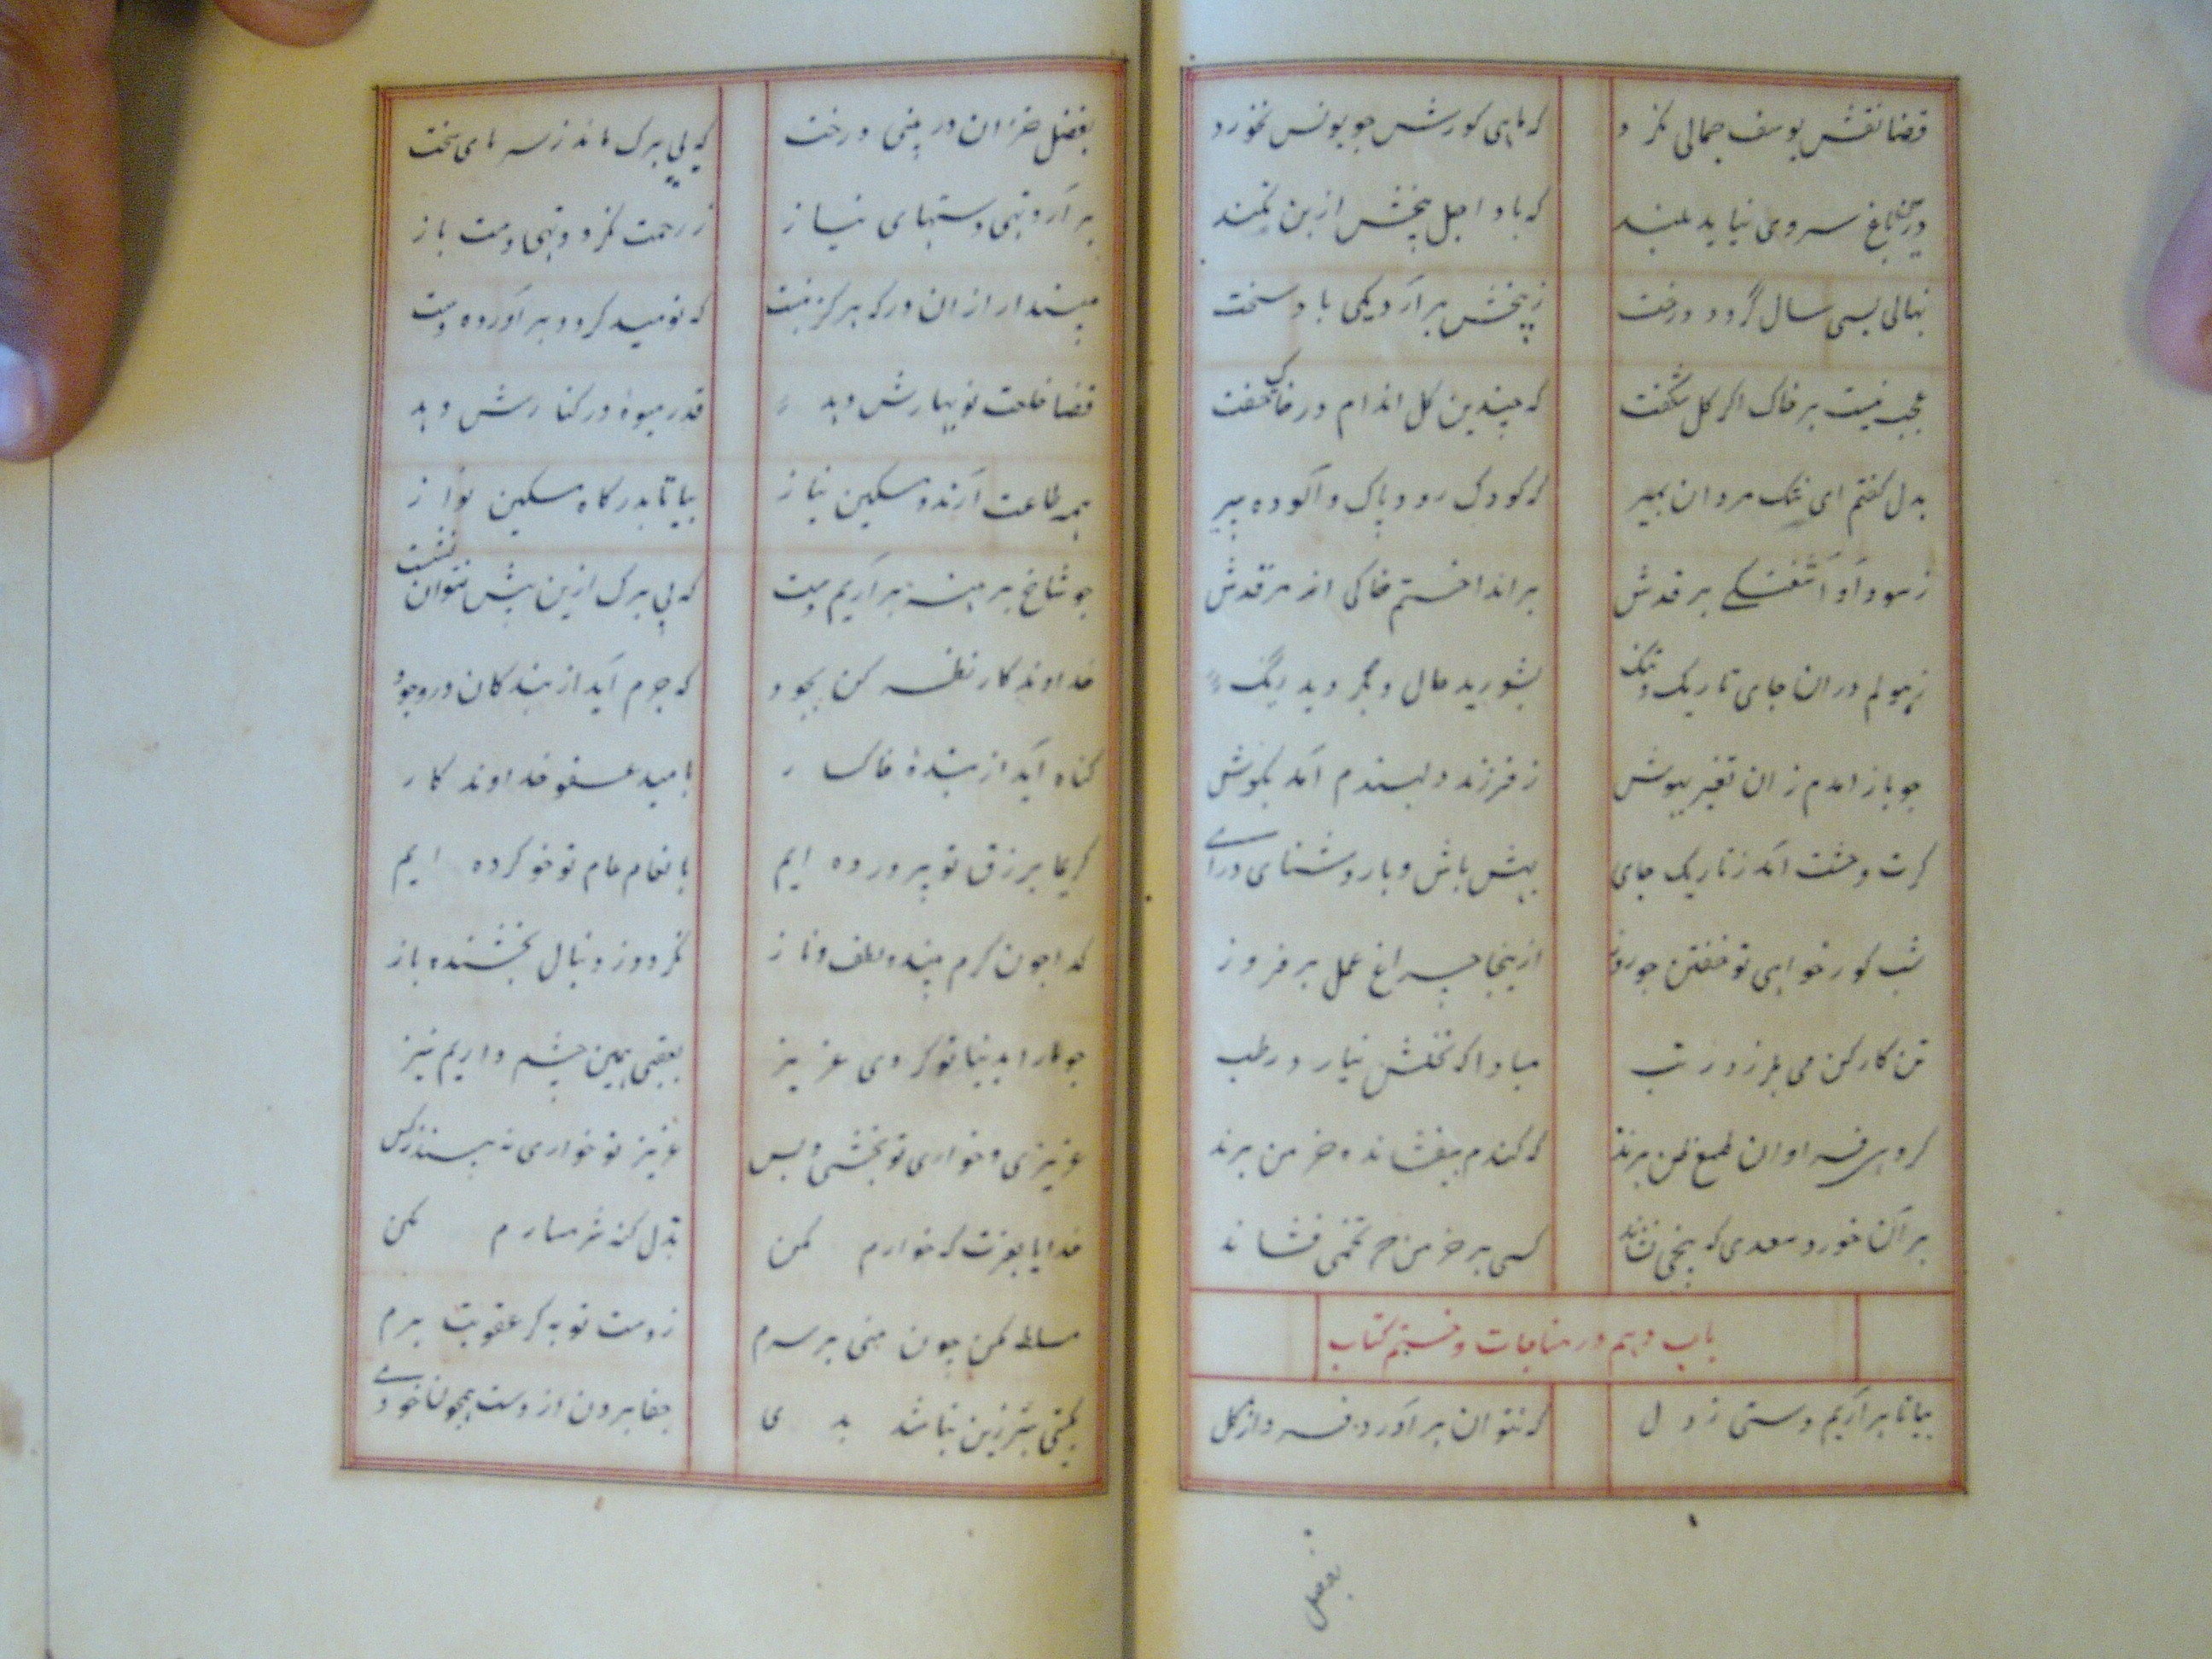 قضا نقش یوسف جمالی نکرد که ماهی کورش جو یونس نخورد
درین باغ سروی نیاید بلند که باد اجل بیخش از بن نکند
نهالی بسی سال گردد درخت ز بیخش برآرد یکی باد سخت
عجب نیست بر خاک اگر گل شگفت که چندین گل اندام در خاک خفت
بدل گفتم ای ننک مردان بمیر که کودک رود پاک و آلوده پیر
ز سودا و آشفتگی بر قدش برانداختم خاکی از مرقدش
ز هولم دران جای تاریک و تنک بشورید حال و بگردید رنگ
جو باز آمدم زان تغیر بهوش ز فرزند دلبندم آمد بگوش
گرت وحشت آمد ز تاریک جای بهش باش و با روشنای درآی
شب گور خواهی تو خفتن جو روز ازینجا چراغ عمل برفروز
تن کارکن می بلرزد ز تب مبادا که نخلش نیارد رطب
گروهی فراوان طمع ظن برند که گندم نیفشانده خرمن برند
بر آن خورد سعدی که بیخی نشاند کسی برد خرمن که تخمی فشاند
باب دهم در مناجات و ختم کتاب
بیا تا برآریم دستی ز دل که نتوان برآورد فردا ز گل
بفصل
بفصل خزان در نبینی درخت که بی برک ماند ز سرمای سخت
برآرد تهی دستهای نیاز ز رحمت نگردد تهی دست باز
مپندار ازان در که هرگز نبست که نومید گردد برآورده دست
قضا خلعت نوبهارش دهد قدر میوه در کنارش دهد
همه طاعت آرند و مسکین نیاز بیا تا بدرگاه مسکین نواز
جو شاخ برهنه برآریم دست که بی برک ازین بیش نتوان نشست
خداوندگارا نظر کن بجود که جرم آید از بندگان در وجود
گناه آید از بنده خاکسار بامید عفو خداوندگار
کریما برزق تو پرورده ایم بانعام عام تو خو کرده ایم
گدا چون کرم بیند و لطف و ناز نگردد ز دنبال بخشنده باز
جو ما را بدنیا تو کردی عزیز بعقبی همین چشم داریم نیز
عزیزی و خواری تو بخشی و بس عزیز تو خواری نبیند ز کس
خدایا بعزت که خوارم مکن بذل گنه شرمسارم مکن
مسلط مکن چون منی بر سرم ز دست تو به گر عقوبت برم
بگیتی بتر زین نباشد بدی جفا بردن از دست همچون خودی